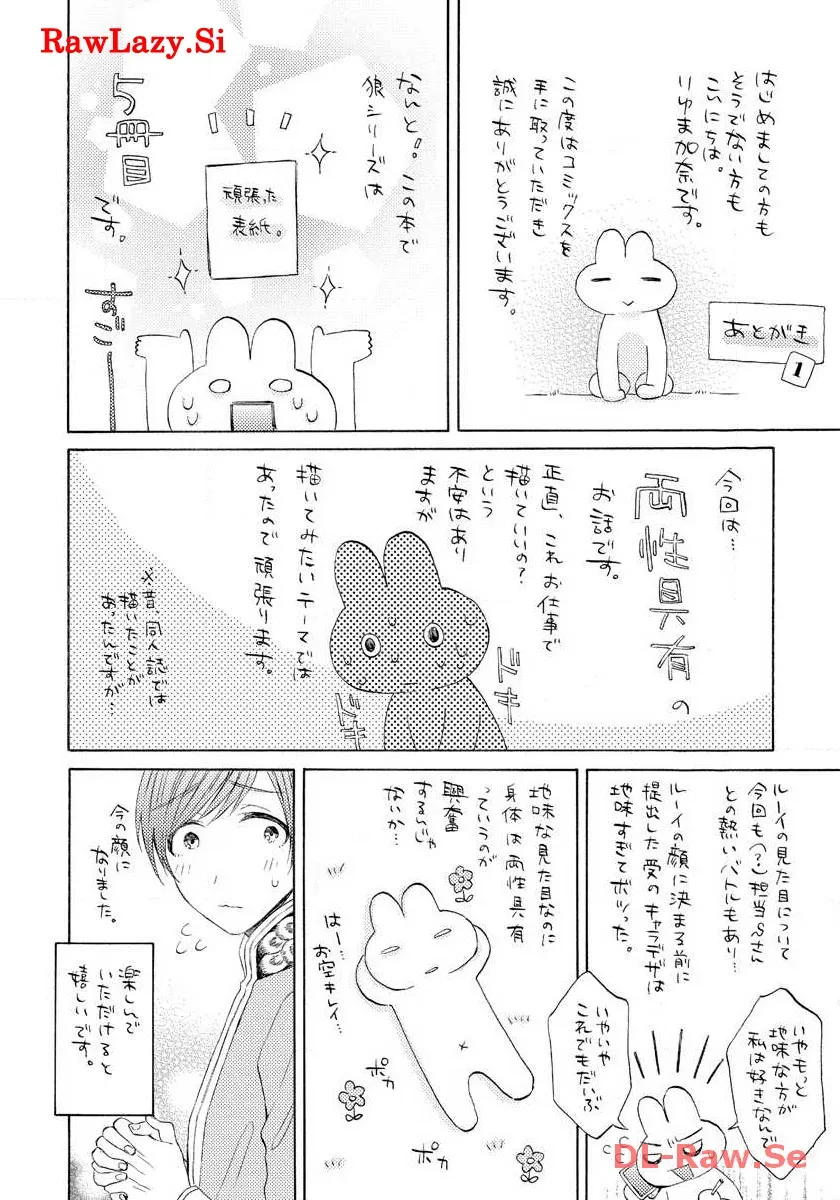 RawLazy.Si
はじめましての方も
そうでない方も
こんにちは。
りゆま加奈です。
この度はコミックスを
手に取っていただき
誠にありがとうございます。
あとがき
1
なんと!この本で
狼シリーズは
5冊目
です。
頑張った
表紙。
すごーー
今回は…
両性具有の
お話です。
正直、これお仕事で
描いていいの?
という
不安はあり
ますが
描いてみたいテーマでは
あったので頑張ります。
※昔、同人誌では
描いたことが
あったんですが…
ドキ
ドキ
ルーイの見た目について
今回も(?)担当Sさん
との熱いバトルもあり…
ルーイの顔に決まる前に
提出した受のキャラデザは
地味すぎてボツった。
いやもっと
地味な方が
私は好きなんで
いやいや
これでもだいぶ
地味な見た目なのに
身体は両性具有
っていうのが
興奮
するんじゃ
ないか…
はー…
お空キレイ…
ポカ
ポカ
今の顔に
なりました。
楽しんで
いただけると
嬉しいです。
DL-Raw.Se